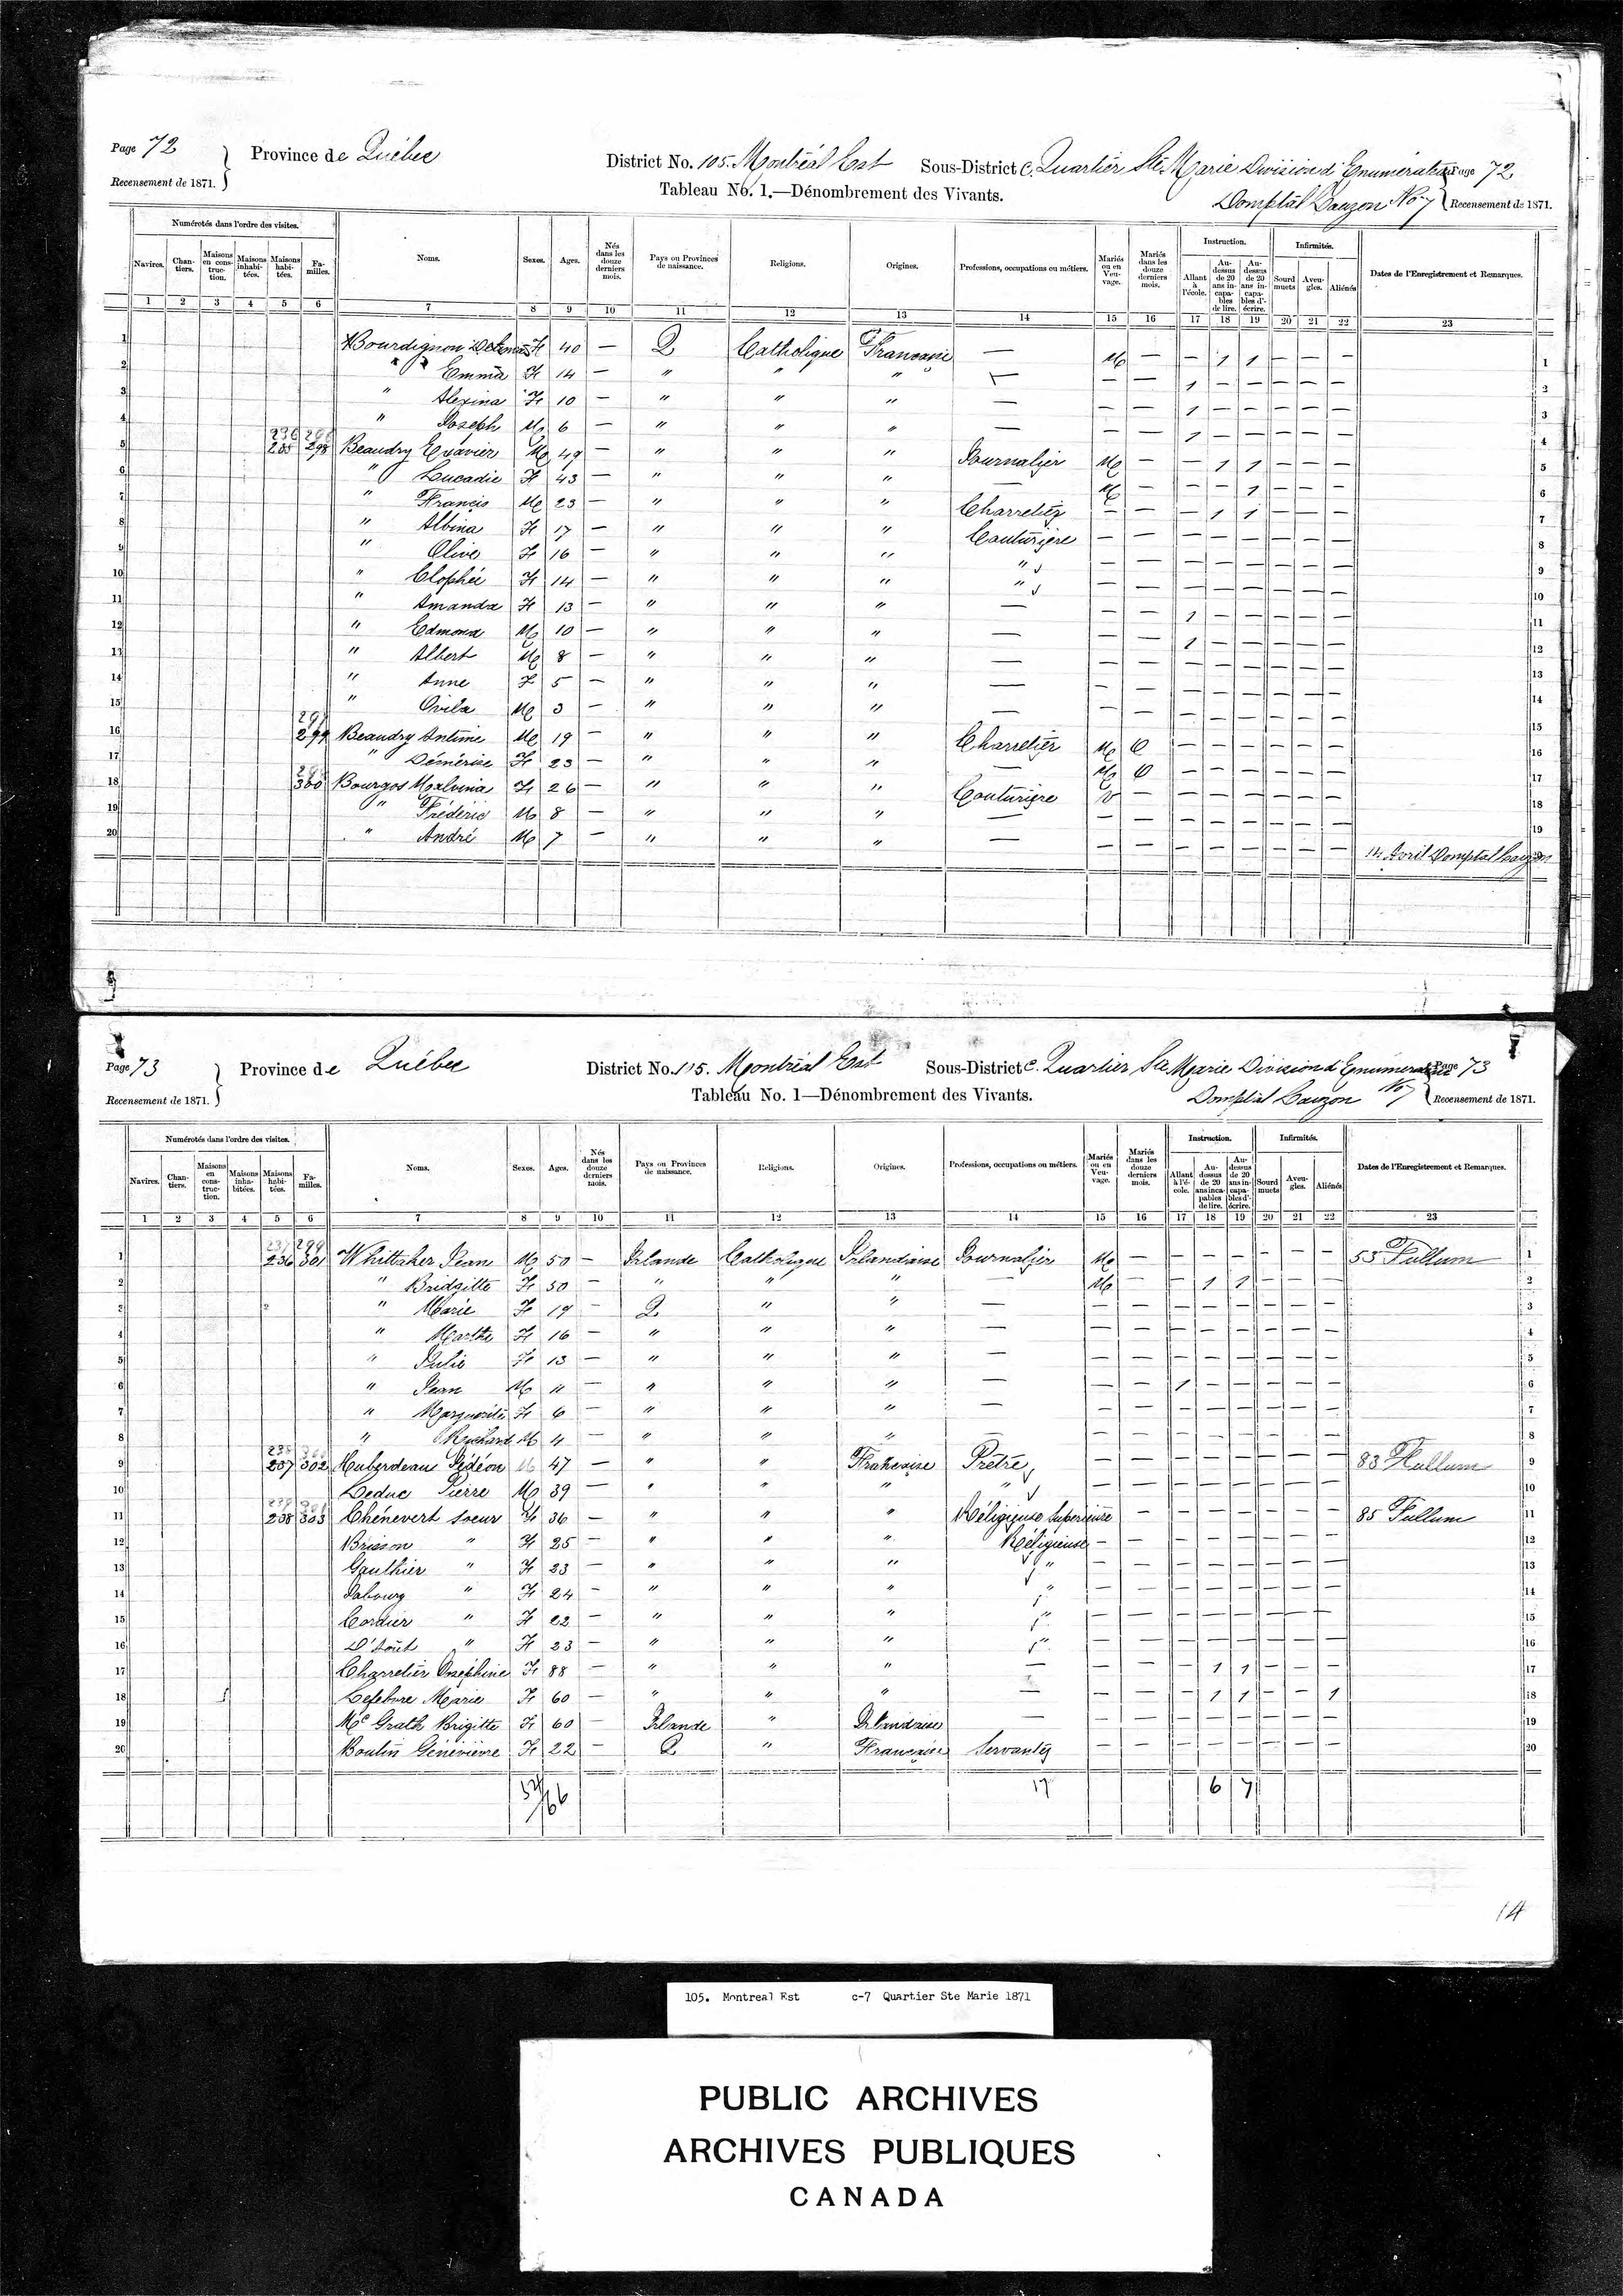 Page 72 Province de Québec District No. 105. Montréal Est Sous-District C. Quartier Ste Marie Division d'Enumération Page 72
Recensement de 1871. Tableau No. 1.—Dénombrement des Vivants. No 7 Recensement de 1871.
Numérotés dans l'ordre des visites. Instruction. Infirmités.
Navires. Chantiers. Maisons en construction. Maisons inhabitées. Maisons habitées. Familles. Noms. Sexes. Ages. Nés dans les douze derniers mois. Pays ou Provinces de naissance. Religions. Origines. Professions, occupations ou métiers. Mariés ou en Veuvage. Mariés dans les douze derniers mois. Allant à l'école. Au-dessus de 20 ans incapables de lire. Au-dessus de 20 ans incapables d'écrire. Sourd muets Aveugles. Aliénés Dates de l'Enregistrement et Remarques.
1 2 3 4 5 6 7 8 9 10 11 12 13 14 15 16 17 18 19 20 21 22 23
1 Bourdignon F 40 — Q Catholique Française — M — — 1 1 — — — 1
2 " Emma F 14 — " " " — — — 1 — — — — — 2
3 " Alexina F 10 — " " " — — — 1 — — — — — 3
4 " Joseph M 6 — " " " — — — 1 — — — — — 4
5 298 Beaudry Exavier M 49 — " " " Journalier M — — 1 1 — — — 5
6 " Lucadie F 43 — " " " M — — — 1 — — — 6
7 " Francis M 23 — " " " Charretier — — — 1 1 — — — 7
8 " Albina F 17 — " " " Couturière — — — — — — — — 8
9 " Olive F 16 — " " " " — — — — — — — — 9
10 " Clophée F 14 — " " " " — — — — — — — — 10
11 " Amanda F 13 — " " " — — — 1 — — — — — 11
12 " Edmond M 10 — " " " — — — 1 — — — — — 12
13 " Albert M 8 — " " " — — — — — — — — — 13
14 " Anne F 5 — " " " — — — — — — — — — 14
15 " Ovila M 3 — " " " — — — — — — — — — 15
16 299 Beaudry Antime M 19 — " " " Charretier M — — — — — — 16
17 " Démérise F 23 — " " " — M — — — — — — 17
18 300 Bourgos Malvina F 26 — " " " Couturière V — — — — — — — 18
19 " Fréderic M 8 — " " " — — — — — — — — — 19
20 " André M 7 — " " " — — — — — — — — — 14 Avril
Page 73 Province de Québec District No. 105. Montréal Est Sous-District C. Quartier Ste Marie Division d'Enumération Page 73
Recensement de 1871. Tableau No. 1—Dénombrement des Vivants. No 7 Recensement de 1871.
Numérotés dans l'ordre des visites. Instruction. Infirmités.
Navires. Chantiers. Maisons en construction. Maisons inhabitées. Maisons habitées. Familles. Noms. Sexes. Ages. Nés dans les douze derniers mois. Pays ou Provinces de naissance. Religions. Origines. Professions, occupations ou métiers. Mariés ou en Veuvage. Mariés dans les douze derniers mois. Allant à l'école. Au-dessus de 20 ans incapables de lire. Au-dessus de 20 ans incapables d'écrire. Sourd muets Aveugles. Aliénés Dates de l'Enregistrement et Remarques.
1 2 3 4 5 6 7 8 9 10 11 12 13 14 15 16 17 18 19 20 21 22 23
1 236 301 Whittaker Jean M 50 — Irlande Catholique Irlandaise Journalier M — — — — — — — 55 Fullum 1
2 " Bridgitte F 50 — " " " — M — — 1 1 — — — 2
3 " Marie F 19 — Q " " — — — — — — — — — 3
4 " Marthe F 16 — " " " — — — — — — — — — 4
5 " Julie F 13 — " " " — — — — — — — — — 5
6 " Jean M 11 — " " " — — — 1 — — — — — 6
7 " Marguerite F 6 — " " " — — — — — — — — — 7
8 " Richard M 4 — " " " — — — — — — — — 8
9 237 302 Huberdeau Gédéon M 47 — " " Française Prêtre — — — — — — — — 83 Fullum 9
10 Leduc Pierre M 39 — " " " " — — — — — — — — 10
11 238 303 Chénevert Soeur F 36 — " " " Réligieuse Supérieure — — — — — — — — 85 Fullum 11
12 Brisson " F 25 — " " " Réligieuse — — — — — — — — 12
13 Gauthier " F 23 — " " " " — — — — — — — — 13
14 " F 24 — " " " " — — — — — — — — 14
15 Cordier " F 22 — " " " " — — — — — — — — 15
16 D'Aoüt " F 23 — " " " " — — — — — — — — 16
17 Charretier Onéphine F 88 — " " " — — — — 1 1 — — — 17
18 Lefebvre Marie F 60 — " " " — — — — 1 1 — — 1 18
19 Mc Grath Brigitte F 60 — Irlande " Irlandaise — — — — — — — — — 19
20 Boulin Génévieve F 22 — Q " Française Servante — — — — — — — — 20
17 6 7
14
105. Montreal Est c-7 Quartier Ste Marie 1871
PUBLIC ARCHIVES
ARCHIVES PUBLIQUES
CANADA